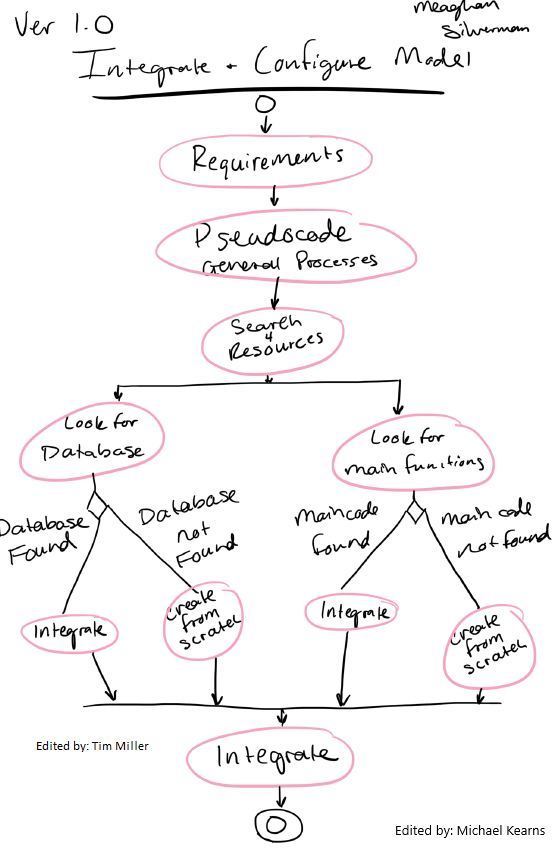 Ver 1.0
Meaghan
Silverman
Integrate + Configure Model
Requirements
Pseudocode
General Processes
Search
4
Resources
Look for
Database
Look for
main functions
Database
Found
Database
not
Found
Maincode
found
main code
not found
Integrate
Create
from
scratch
Integrate
Create
from
scratch
Integrate
Edited by: Tim Miller
Edited by: Michael Kearns